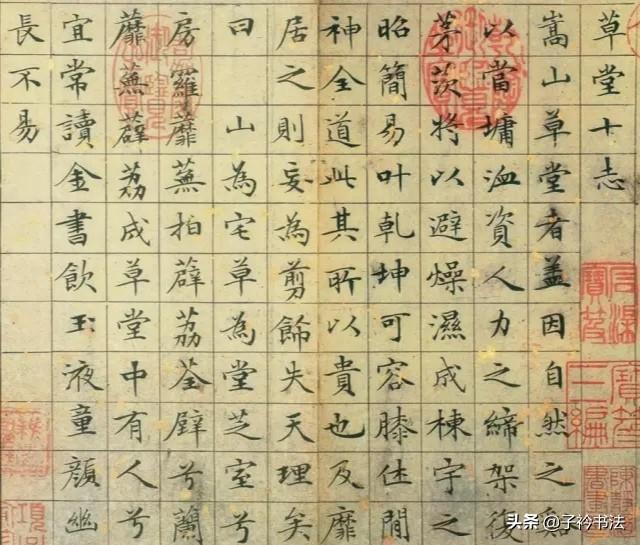 草堂十志
嵩山草堂者盖因自然之谿
以當墉洫資人力之締架復
茅茨将以避燥濕成棟宇之
昭簡易叶乾坤可容膝休閒
神全道此其所以貴也及靡
居之則妄為剪餙失天理矣
曰 山為宅草為堂芝室兮
房羅蘼蕪拍薜荔荃壁兮蘭
蘼蕪薜荔成草堂中有人兮
宜常讀金書飲玉液童顏幽
長不易
头条 @子衿书法